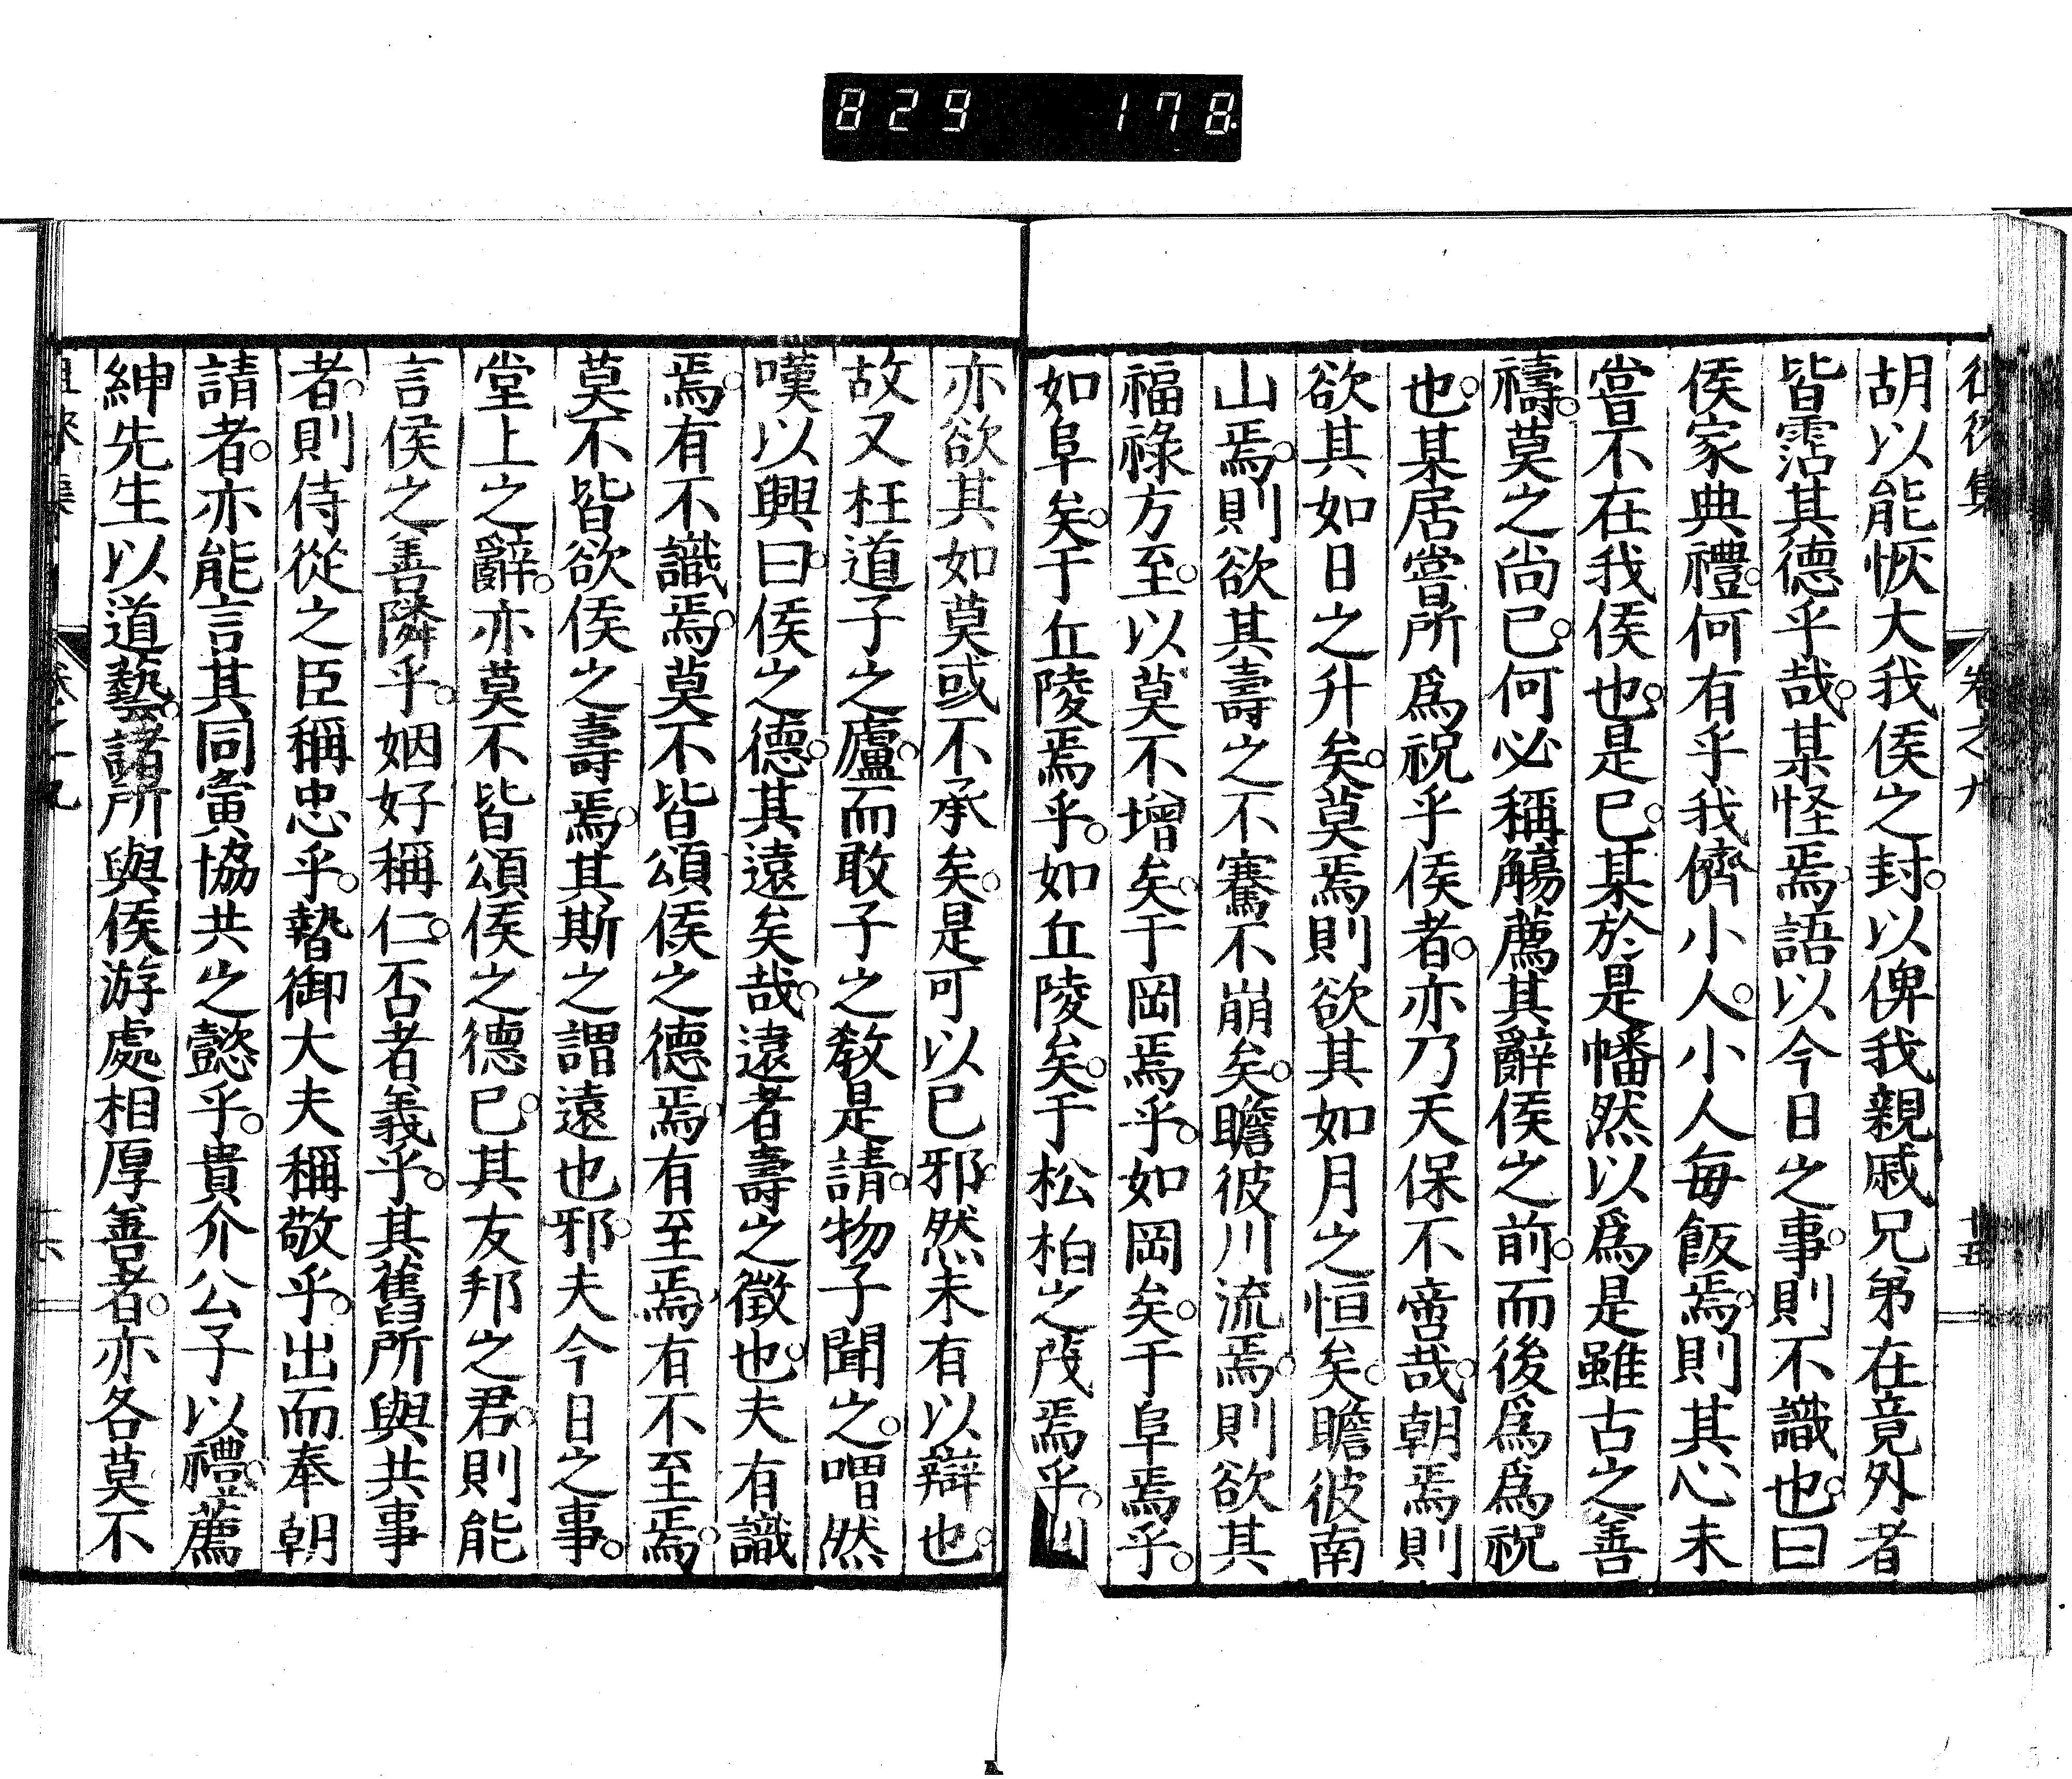 829 178
徂徠集 卷之九 十五
胡以能恢大我侯之封。以俾我親戚兄弟在竟外者
皆霑其德乎哉。某怪焉。語以今日之事。則不識也。曰
侯家典禮。何有乎我儕小人。小人每飯焉。則其心未
嘗不在我侯也。是已。某於是幡然以爲是雖古之善
禱。莫之尚已。何必稱觴薦其辭侯之前。而後爲爲祝
也。某居嘗所爲祝乎侯者。亦乃天保不啻哉。朝焉則
欲其如日之升矣。莫焉則欲其如月之恒矣。瞻彼南
山焉。則欲其壽之不騫不崩矣。瞻彼川流焉。則欲其
福祿方至。以莫不增矣。于岡焉乎。如岡矣。于阜焉乎。
如阜矣。于丘陵焉乎。如丘陵矣。于松柏之茂焉乎。則
亦欲其如莫或不承矣。是可以已邪。然未有以辯也。
故又枉道子之廬。而敢子之教是請。物子聞之。喟然
嘆以興曰。侯之德。其遠矣哉。遠者壽之徵也。夫有識
焉。有不識焉。莫不皆頌侯之德焉。有至焉。有不至焉。
莫不皆欲侯之壽焉。其斯之謂遠也邪。夫今日之事。
堂上之辭。亦莫不皆頌侯之德已。其友邦之君。則能
言侯之善隣乎。姻好稱仁。否者義乎。其舊所與共事
者。則侍從之臣稱忠乎。贄御大夫稱敬乎。出而奉朝
請者。亦能言其同寅協共之懿乎。貴介公子以禮。薦
紳先生以道藝。諸所與侯游處相厚善者。亦各莫不
徂徠集 卷之九 十六